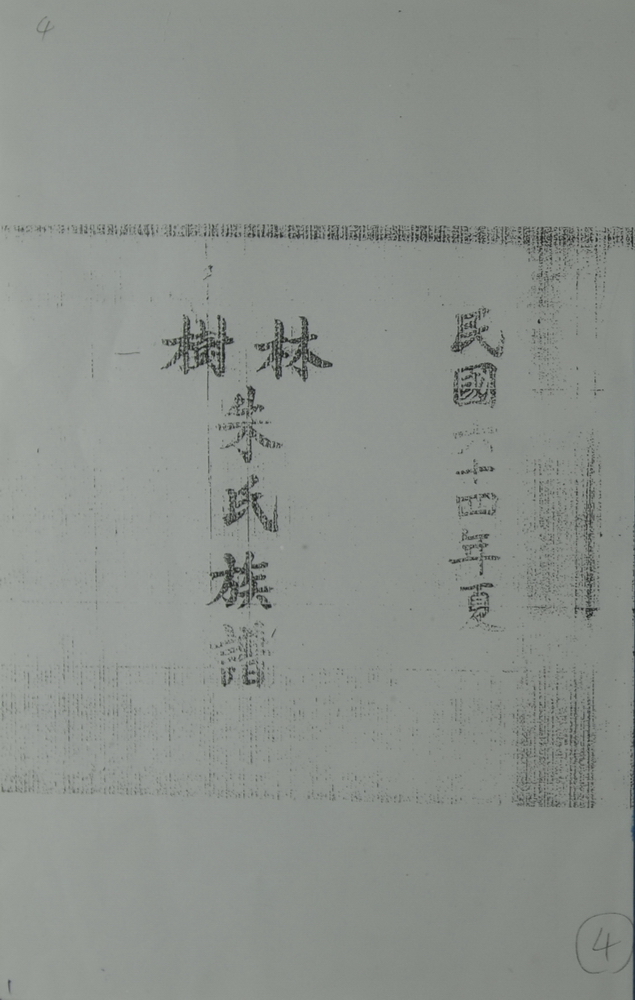 4
民國六十四年夏
樹林
朱氏族譜
4